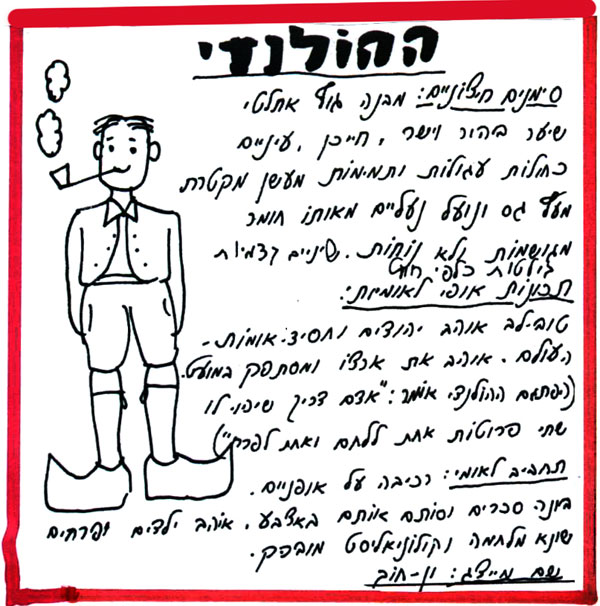 ההולנדי
סימנים חיצוניים: מבנה גוף אתלטי
שיער בהיר וישר, חייכן, עיניים
כחולות עגולות ותמימות מעשן מקטרת
מעץ גס ונועל נעליים מאותו חומר
מגושמות ולא נוחות. שיניים קדמיות
בולטות כלפי חוץ
תכונות אופי לאומיות:
טוב-לב אוהב יהודים וחסיד-אומות-
העולם. אוהב את ארצו ומסתפק במועט.
(הפתגם ההולנדי אומר: "אדם צריך שיהיו לו
שתי פרוטות אחת ללחם ואחת לפרח")
תחביב לאומי: רכיבה על אופניים.
בונה סכרים וסותם אותם באצבע. אוהב ילדים ופרחים
שונא מלחמה וקולוניאליסט מובהק.
שם מייצג: ון-חוך